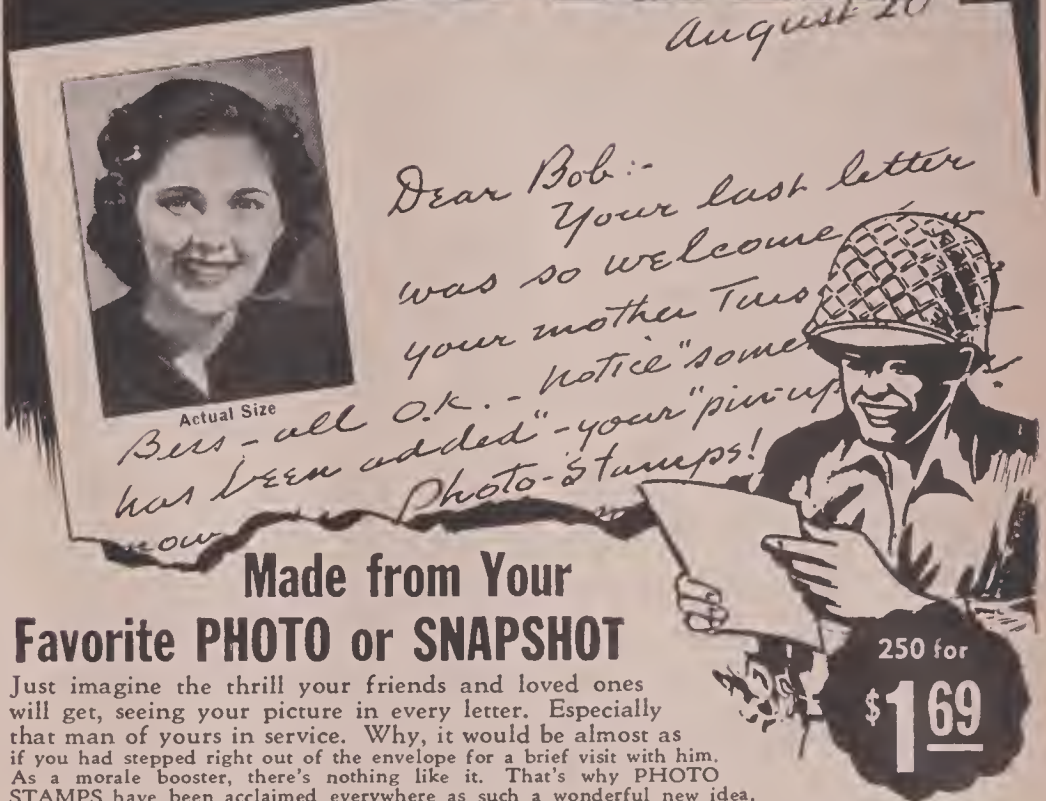 August 20
Dear Bob:-
Your last letter
was so welcome
your mother Tues
Actual Size
Bess - all O.K. - notice "some
has been added" - your "pin-up
now Photo-Stamps!
Made from Your
Favorite PHOTO or SNAPSHOT
250 for
$1.69
Just imagine the thrill your friends and loved ones
will get, seeing your picture in every letter. Especially
that man of yours in service. Why, it would be almost as
if you had stepped right out of the envelope for a brief visit with him.
As a morale booster, there's nothing like it. That's why PHOTO
STAMPS have been acclaimed everywhere as such a wonderful new idea.